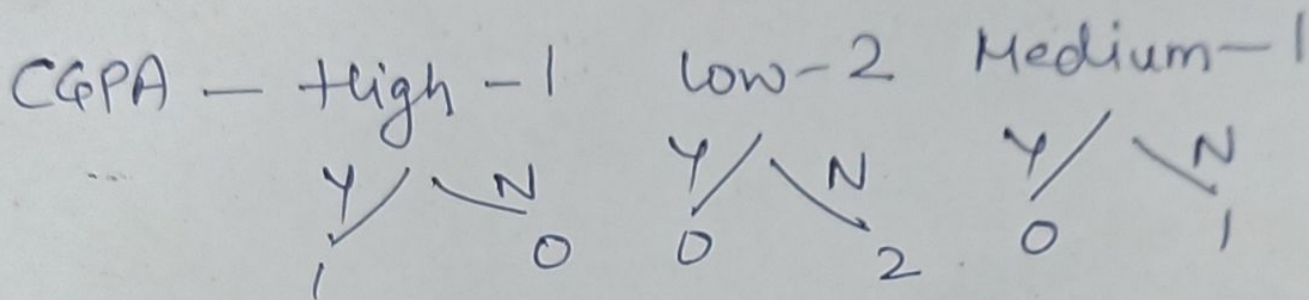 CGPA - High - 1 Low - 2 Medium - 1
Y N Y N Y N
1 0 0 2 0 1